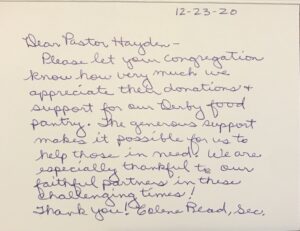 12-23-20
Dear Pastor Hayden -
Please let your congregation
know how very much we
appreciate their donations &
support for our Derby food
pantry. The generous support
makes it possible for us to
help those in need. We are
especially thankful to our
faithful partners in these
challenging times!
Thank you! Colene Read, Sec.